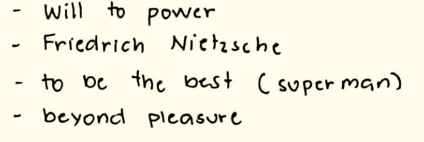 - Will to power
- Friedrich Nietzsche
- to be the best (superman)
- beyond pleasure